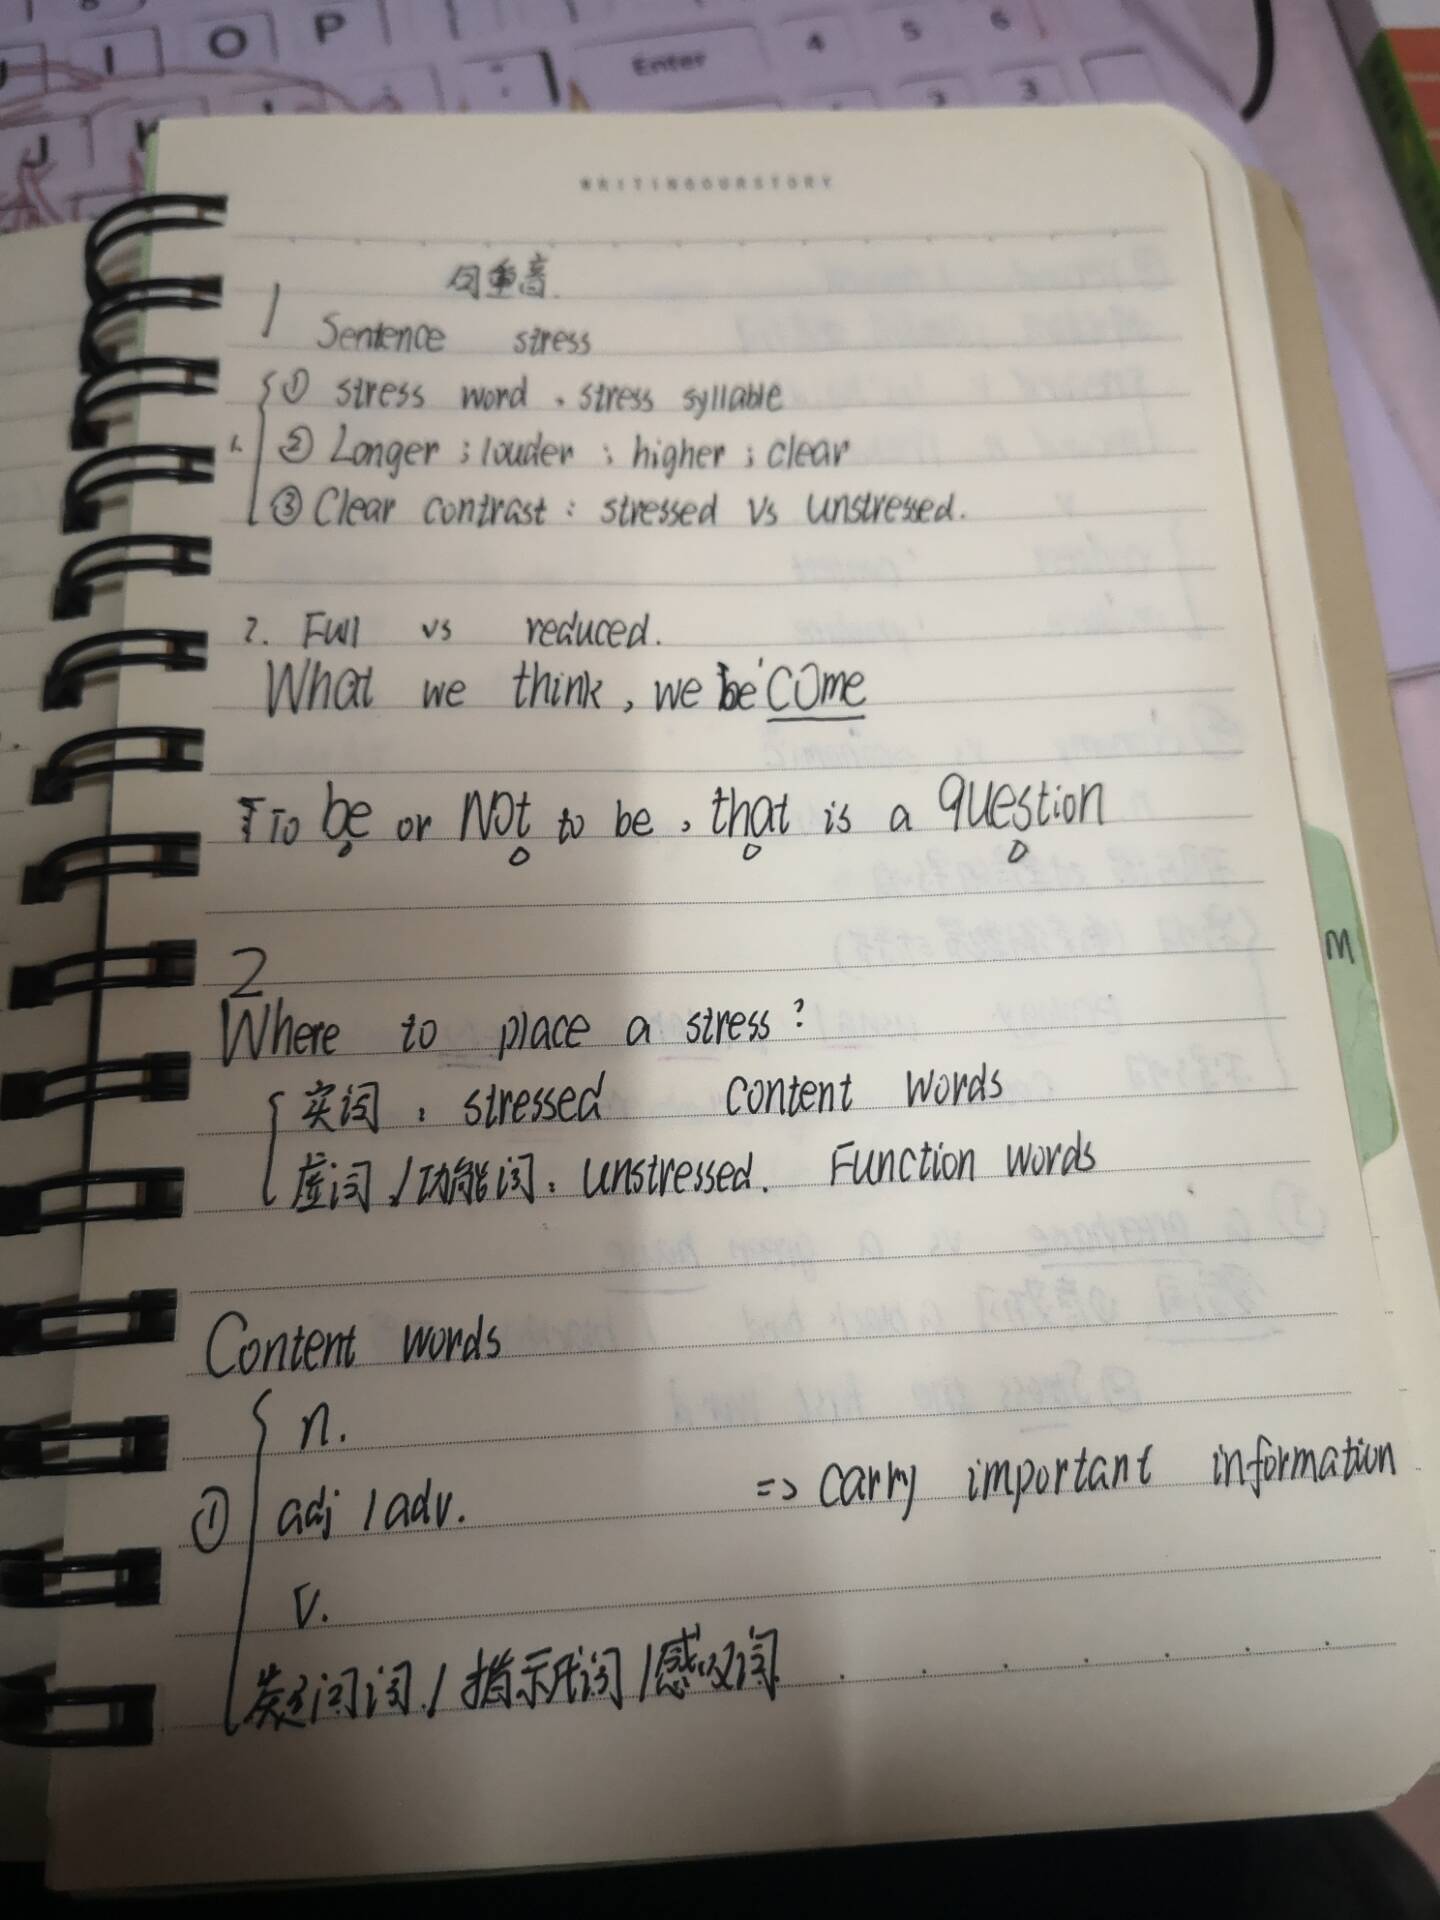 U I O P Enter 4 5 6
J K 2 3
WRITINGOURSTORY
句重音.
1 Sentence stress
1. ① stress word . stress syllable
② Longer ; louder ; higher ; clear
③ Clear contrast : stressed Vs unstressed.
2. Full vs reduced.
What we think, we be'come
To be or Not to be, that is a question
2
Where to place a stress?
实词 : stressed Content words
虚词 / 功能词 : unstressed. Function words
M
Content words
n.
① adj / adv. => carry important information
v.
疑问词 / 指示代词 / 感叹词.